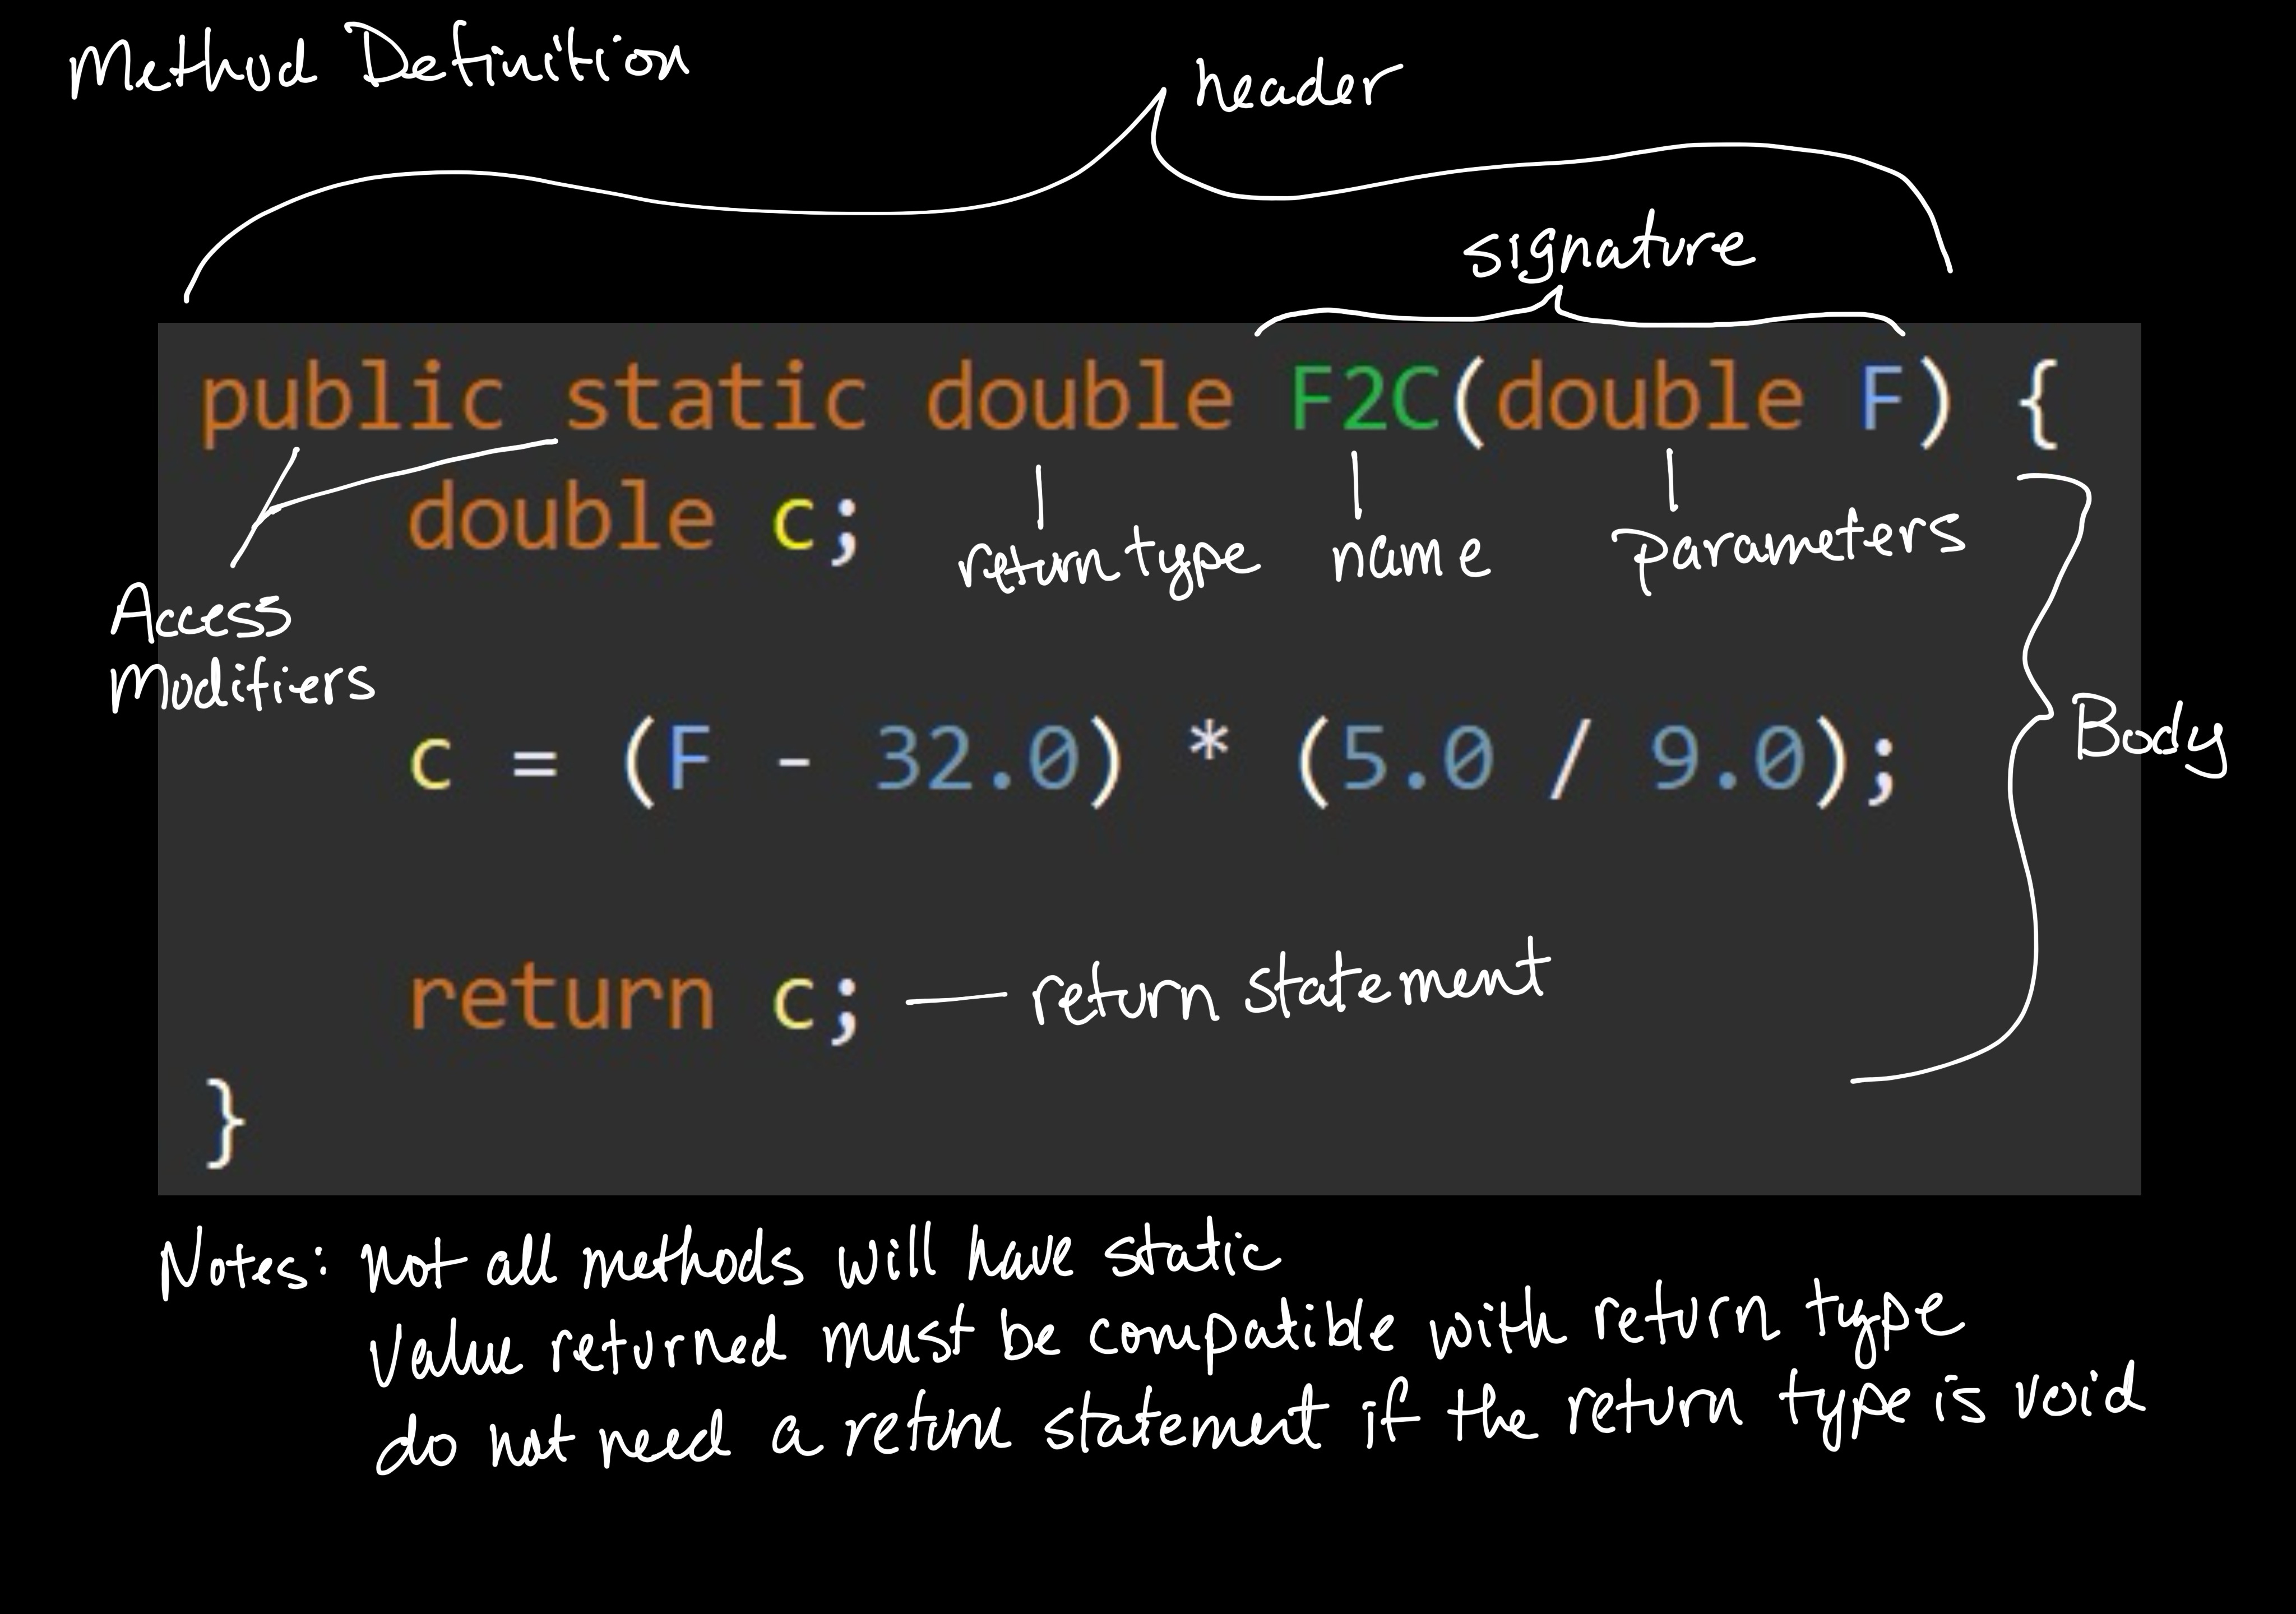 Method Definition
header
signature
public static double F2C(double F) {
double c;
return type name parameters
Access
Modifiers
c = (F - 32.0) * (5.0 / 9.0);
Body
return c; — return statement
}
Notes: not all methods will have static
Value returned must be compatible with return type
do not need a return statement if the return type is void